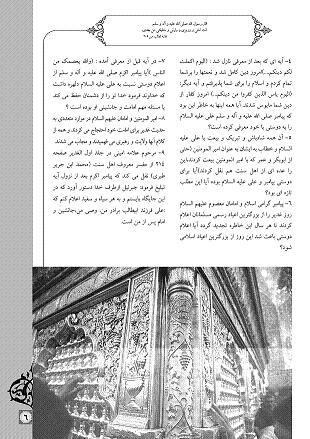 قال رسول الله صلی الله علیه و آله و سلم
۴- آیه ای که بعد از معرفی نازل شد : (الیوم اکملت
لکم دینکم...)امروز دین کامل شد و نعمتها را برشما
تمام کردم و اسلام را برای شما پذیرفتم و آیه دیگر:
(الیوم یئس الذین کفروا من دینکم...) امروز کفار از
دین شما مایوس شدند. آیا همه اینها به خاطر این بود
که پیامبر صلی الله علیه و آله و سلم علی علیه السلام
را به دوستی با خود معرفی کرده است؟
۵- آن همه شادباش و تبریک و بیعت با علی علیه
السلام و خطاب به ایشان به عنوان امیر المومنین (حتی
از ابوبکر و عمر که با امیر المومنین بیعت کردند)این
را عده ای از اهل سنت هم نقل کردند)آیا برای
دوستی پیامبر و علی علیه السلام بوده آیا این مطلب
تازه ای بود؟
۶- پیامبر گرامی اسلام و امامان معصوم علیهم السلام
روز غدیر را از بزرگترین اعیاد رسمی مسلمانان اعلام
کردند تا هر سال این خاطره تجدید گردد آیا اعلام
دوستی باعث شد این روز از بزرگترین اعیاد اسلامی
شود؟
۷- در آیه قبل از معرفی آمده : (والله یعصمک من
الناس )آیا پیامبر اکرم صلی الله علیه و آله و سلم از
اعلام دوستی نسبت به علی علیه السلام دلهره داشت
که خداوند فرمود خدا تو را از دشمنان حفظ می کند
یا مسئله مهم امامت و جانشینی او بوده است ؟
۸- امیر المومنین و امامان علیهم السلام در موارد متعددی به
حدیث غدیر برای امامت خود احتجاج می کردند و همه از
کلام آنها ولایت و رهبری می فهمیدند و مجاب می شدند.
۹- مرحوم علامه امینی در جلد اول الغدیر صفحه
۲۱۴ از مفسر معروف اهل سنت (محمد ابن جریر
طبری) نقل می کند که پیامبر اکرم بعد از نزول آیه
تبلیغ فرمود: جبرئیل ازطرف خدا دستور آورد که در
این جایگاه بایستم و به هر سیاه و سفید اعلام کنم که
:علی فرزند ابیطالب برادر من، وصی من،جانشین و
امام پس از من است.
۶